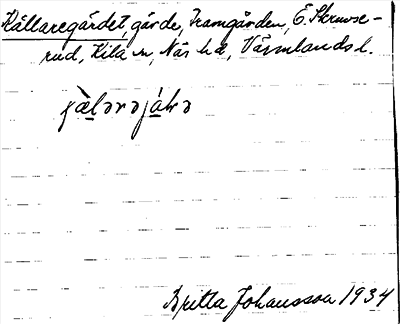 Källaregärdet, gärde, Framgården, Ö. Skruvse-
rud, Kila sn, Näs hd, Värmlands l.
Britta Johansson 1934